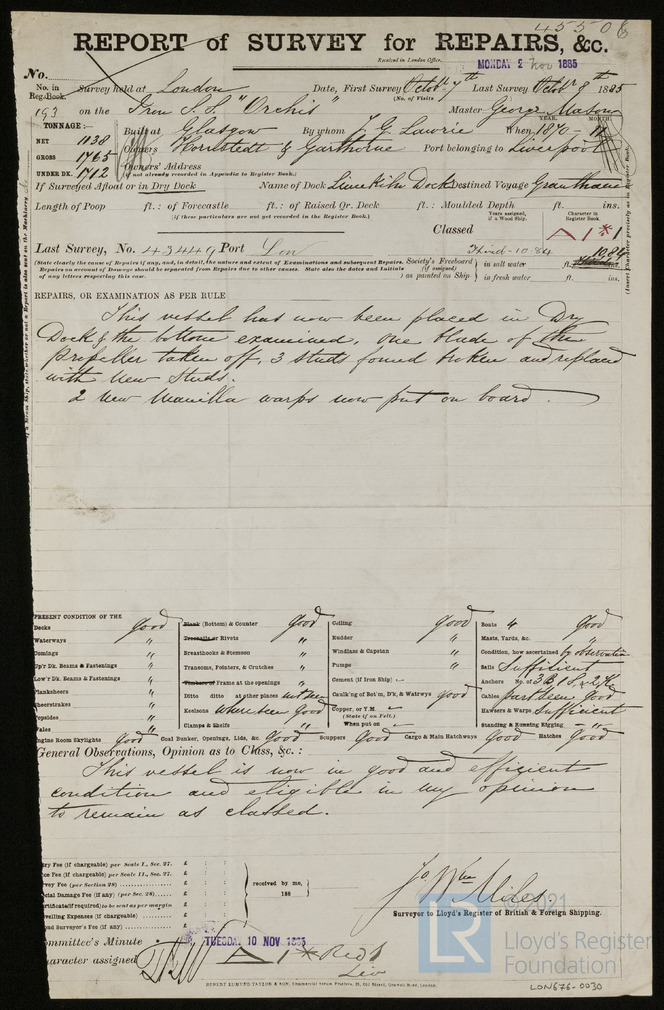 45508
REPORT of SURVEY for REPAIRS, &c.
Received in London Office,
MONDAY 2 Nov 1885
No.
No. in Reg. Book.
Survey held at London Date, First Survey Octobr 7th Last Survey Octobr 8th 1885
(No. of Visits
193 on the Iron S.S "Orchis" Master George Mason
TONNAGE:
YEAR. MONTH.
NET 1138
Built at Glasgow By whom J. G. Lawrie When 1870
GROSS 1765
Owners Hornstedt & Garthorne Port belonging to Liverpool
UNDER DK. 1712
Owners' Address
(if not already recorded in Appendix to Register Book.)
If Surveyed Afloat or in Dry Dock Name of Dock Limekiln Dock Destined Voyage
Length of Poop ft.: of Forecastle ft.: of Raised Qr. Deck ft.: Moulded Depth ft. ins.
(if these particulars are not yet recorded in the Register Book.)
Years assigned, if a Wood Ship.
Character in Register Book.
Classed A1*1
Last Survey, No. 43449 Port Lon Third-10.84 10.84
(State clearly the cause of Repairs if any, and, in detail, the nature and extent of Examinations and subsequent Repairs.
Repairs on account of Damage should be separated from Repairs due to other causes. State also the dates and Initials
of any letters respecting this case.
Society's Freeboard (if assigned) as painted on Ship
in salt water ft. ins.
in fresh water ft. ins.
REPAIRS, OR EXAMINATION AS PER RULE
This vessel has now been placed in Dry
Dock & the bottom examined, one blade of the
Propeller taken off, 3 studs found broken and replaced
with new studs.
2 new manilla warps now put on board.
PRESENT CONDITION OF THE
Decks good
Waterways "
Comings "
Up'r Dk. Beams & Fastenings "
Low'r Dk. Beams & Fastenings "
Planksheers "
Sheerstrakes "
Topsides "
Wales "
Engine Room Skylights Good
Blank (Bottom) & Counter good
Treenails or Rivets "
Breasthooks & Stemson "
Transoms, Pointers, & Crutches "
Timbers or Frame at the openings "
Ditto ditto at other places not seen
Keelsons where seen Good
Clamps & Shelfs
Coal Bunker, Openings, Lids, &c. Good
Ceiling good
Rudder "
Windlass & Capstan "
Pumps "
Cement (if Iron Ship)
Caulk'ng Bot'm, D'k, & Watrwys good
Copper, or Y.M.
(State if on Felt.)
When put on
Scuppers Good Cargo & Main Hatchways Good Hatches Good
Boats " good
Masts, Yards, &c. "
Condition, how ascertained by observation
Sails Sufficient
Anchors No. of 3 B, 1 S, 2 K
Cables Good
Hawsers & Warps Sufficient
Standing & Running Rigging "
General Observations, Opinion as to Class, &c.:
This vessel is now in good and efficient
condition and eligible in my opinion
to remain as classed.
ry Fee (if chargeable) per Scale I., Sec. 27. £
ce Fee (if chargeable) per Scale II., Sec. 27. £
vey Fee (per Section 28) £
cial Damage Fee (if any) (per Sec. 28) £
ertificate (if required) to be sent as per margin
velling Expenses (if chargeable) £
nd Surveyor's Fee (if any) £
received by me,
188
Jo Wm Miles.
Surveyor to Lloyd's Register of British & Foreign Shipping.
ommittee's Minute
TUESDAY 10 NOV 1885
haracter assigned A1* Red 1
Liv
ROBERT EDMUND TAYLOR & SON, Commercial Steam Printers, 19, Old Street, Goswell Road, London.
© 2021
LR
Lloyd's Register
Foundation
LON676-0030